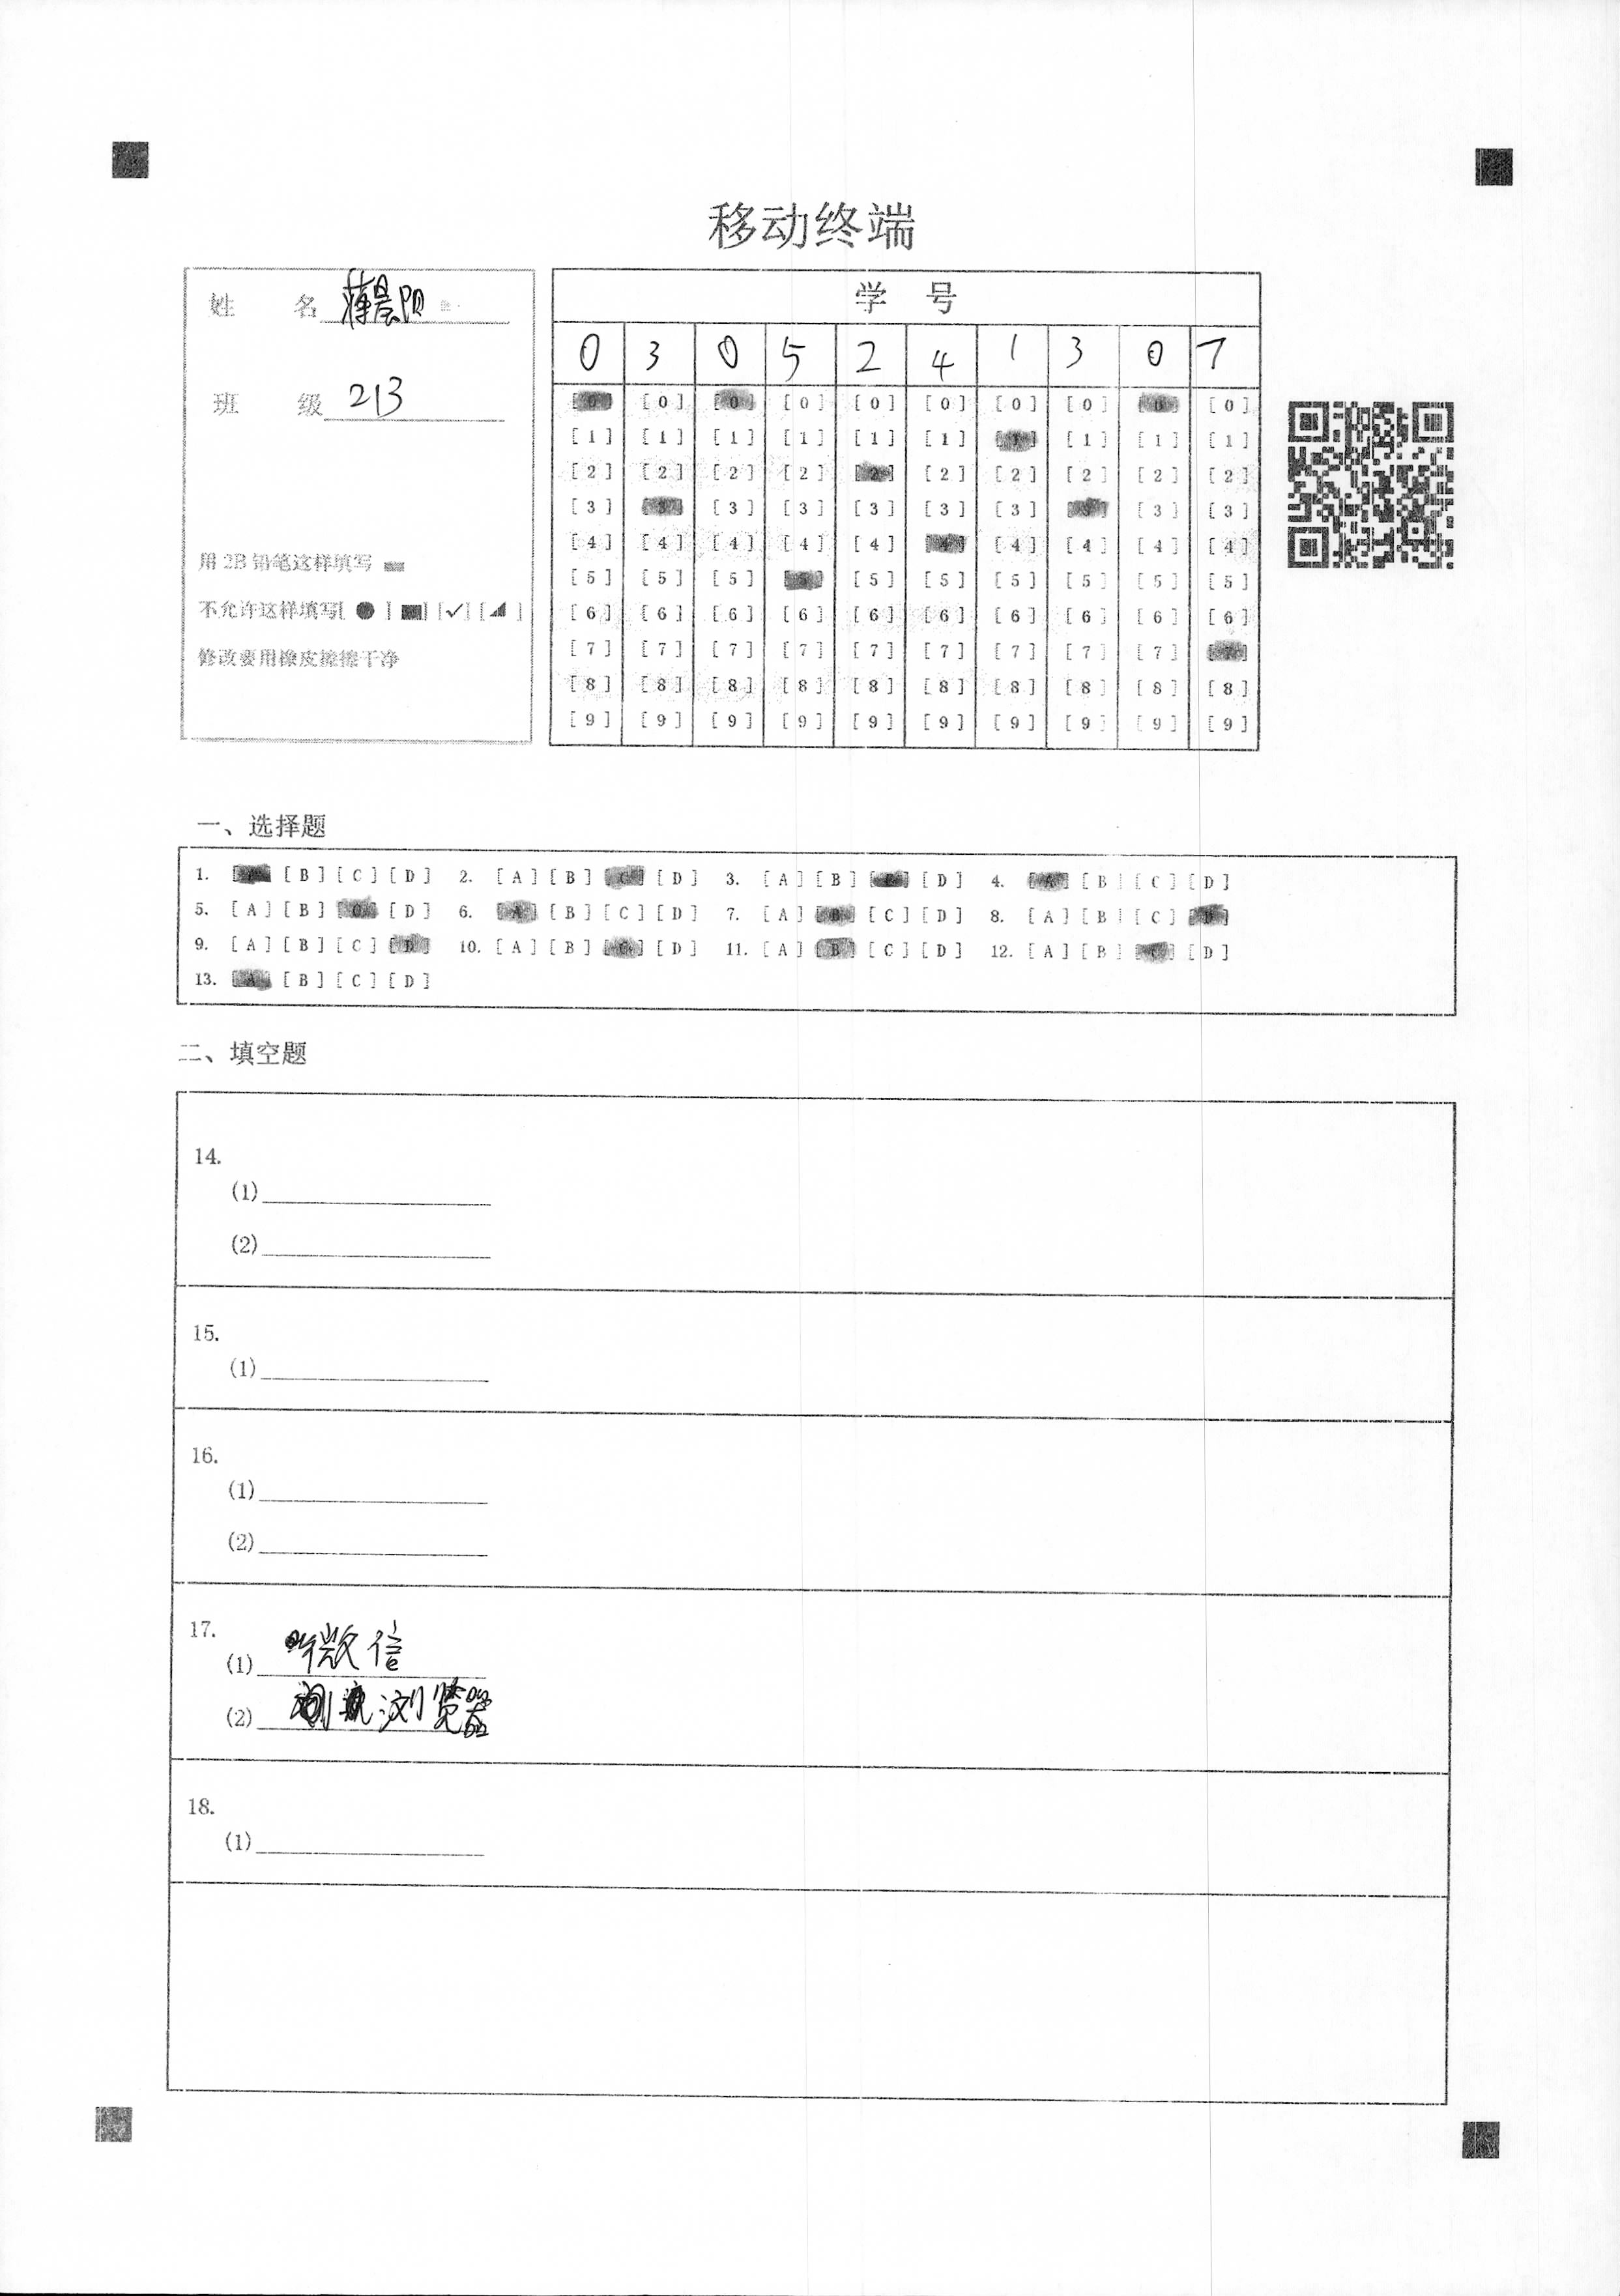 移动终端
姓 名 薄晨阳
班 级 213
用 2B 铅笔这样填写
不允许这样填写[ ● ] [■] [✓] [◢ ]
修改要用橡皮擦擦干净
学 号
0 3 0 5 2 4 1 3 0 7
[0] [0] [0] [0] [0] [0] [0] [0] [0] [0]
[1] [1] [1] [1] [1] [1] [1] [1] [1] [1]
[2] [2] [2] [2] [2] [2] [2] [2] [2] [2]
[3] [3] [3] [3] [3] [3] [3] [3] [3] [3]
[4] [4] [4] [4] [4] [4] [4] [4] [4] [4]
[5] [5] [5] [5] [5] [5] [5] [5] [5] [5]
[6] [6] [6] [6] [6] [6] [6] [6] [6] [6]
[7] [7] [7] [7] [7] [7] [7] [7] [7] [7]
[8] [8] [8] [8] [8] [8] [8] [8] [8] [8]
[9] [9] [9] [9] [9] [9] [9] [9] [9] [9]
一、选择题
1. [A] [B] [C] [D] 2. [A] [B] [C] [D] 3. [A] [B] [C] [D] 4. [A] [B] [C] [D]
5. [A] [B] [C] [D] 6. [A] [B] [C] [D] 7. [A] [B] [C] [D] 8. [A] [B] [C] [D]
9. [A] [B] [C] [D] 10. [A] [B] [C] [D] 11. [A] [B] [C] [D] 12. [A] [B] [C] [D]
13. [A] [B] [C] [D]
二、填空题
14.
(1)
(2)
15.
(1)
16.
(1)
(2)
17.
(1) 微信
(2) 浏览器
18.
(1)